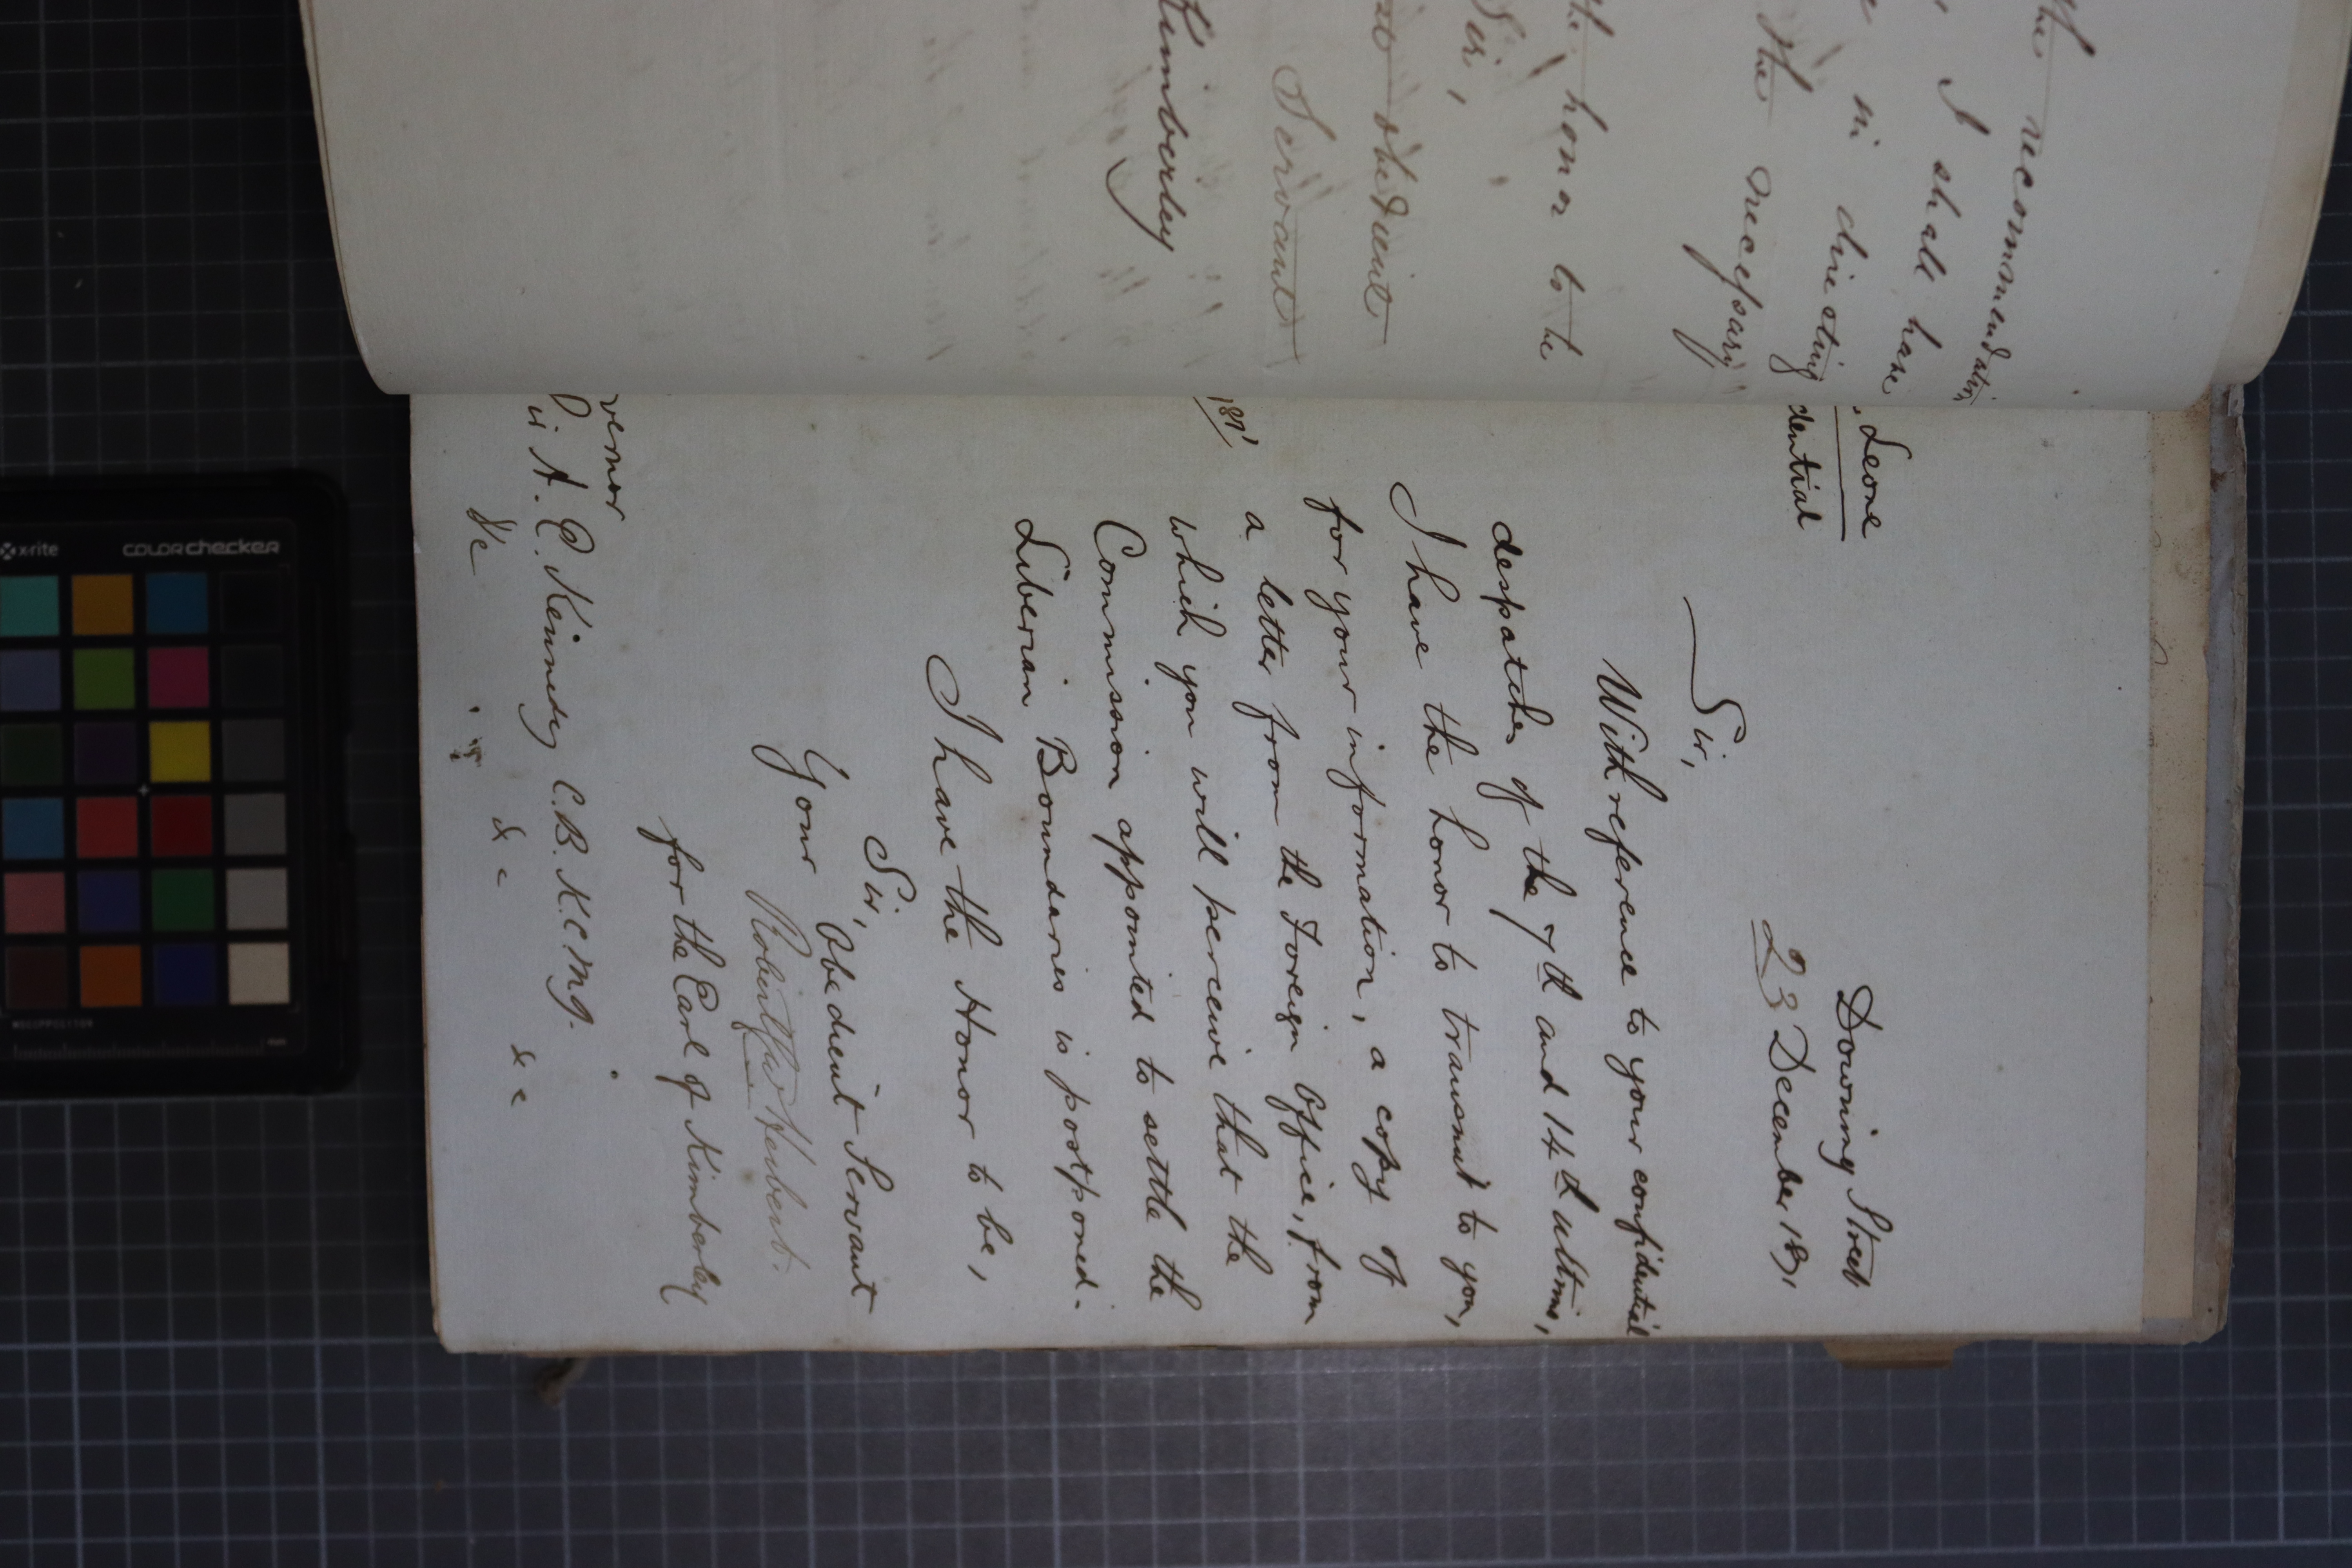 the recommendation
I shall have
in directing
the necessary
the honor to be
Sir,
obedient
Servant
Kimberley
Leone
dential
Downing Street
23 December 1871
Sir,
With reference to your confidential
despatches of the 7th and 14th ultimo,
I have the honor to transmit to you,
for your information, a copy of
a letter from the Foreign Office, from
which you will perceive that the
Commission appointed to settle the
Liberian Boundaries is postponed.
1871
I have the Honor to be,
Sir,
Your Obedient Servant
Robert Herbert.
for the Earl of Kimberley
vernor
ir A. E. Kennedy C.B. K.C.M.G.
&c &c &c
x-rite colorchecker